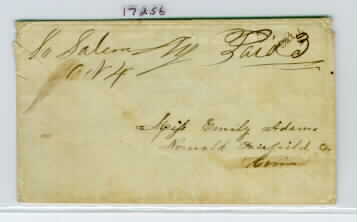 17256
So Salem NY Paid 3
Oct 4
Miss Emily Adams
Norwalk Fairfield Co
Conn